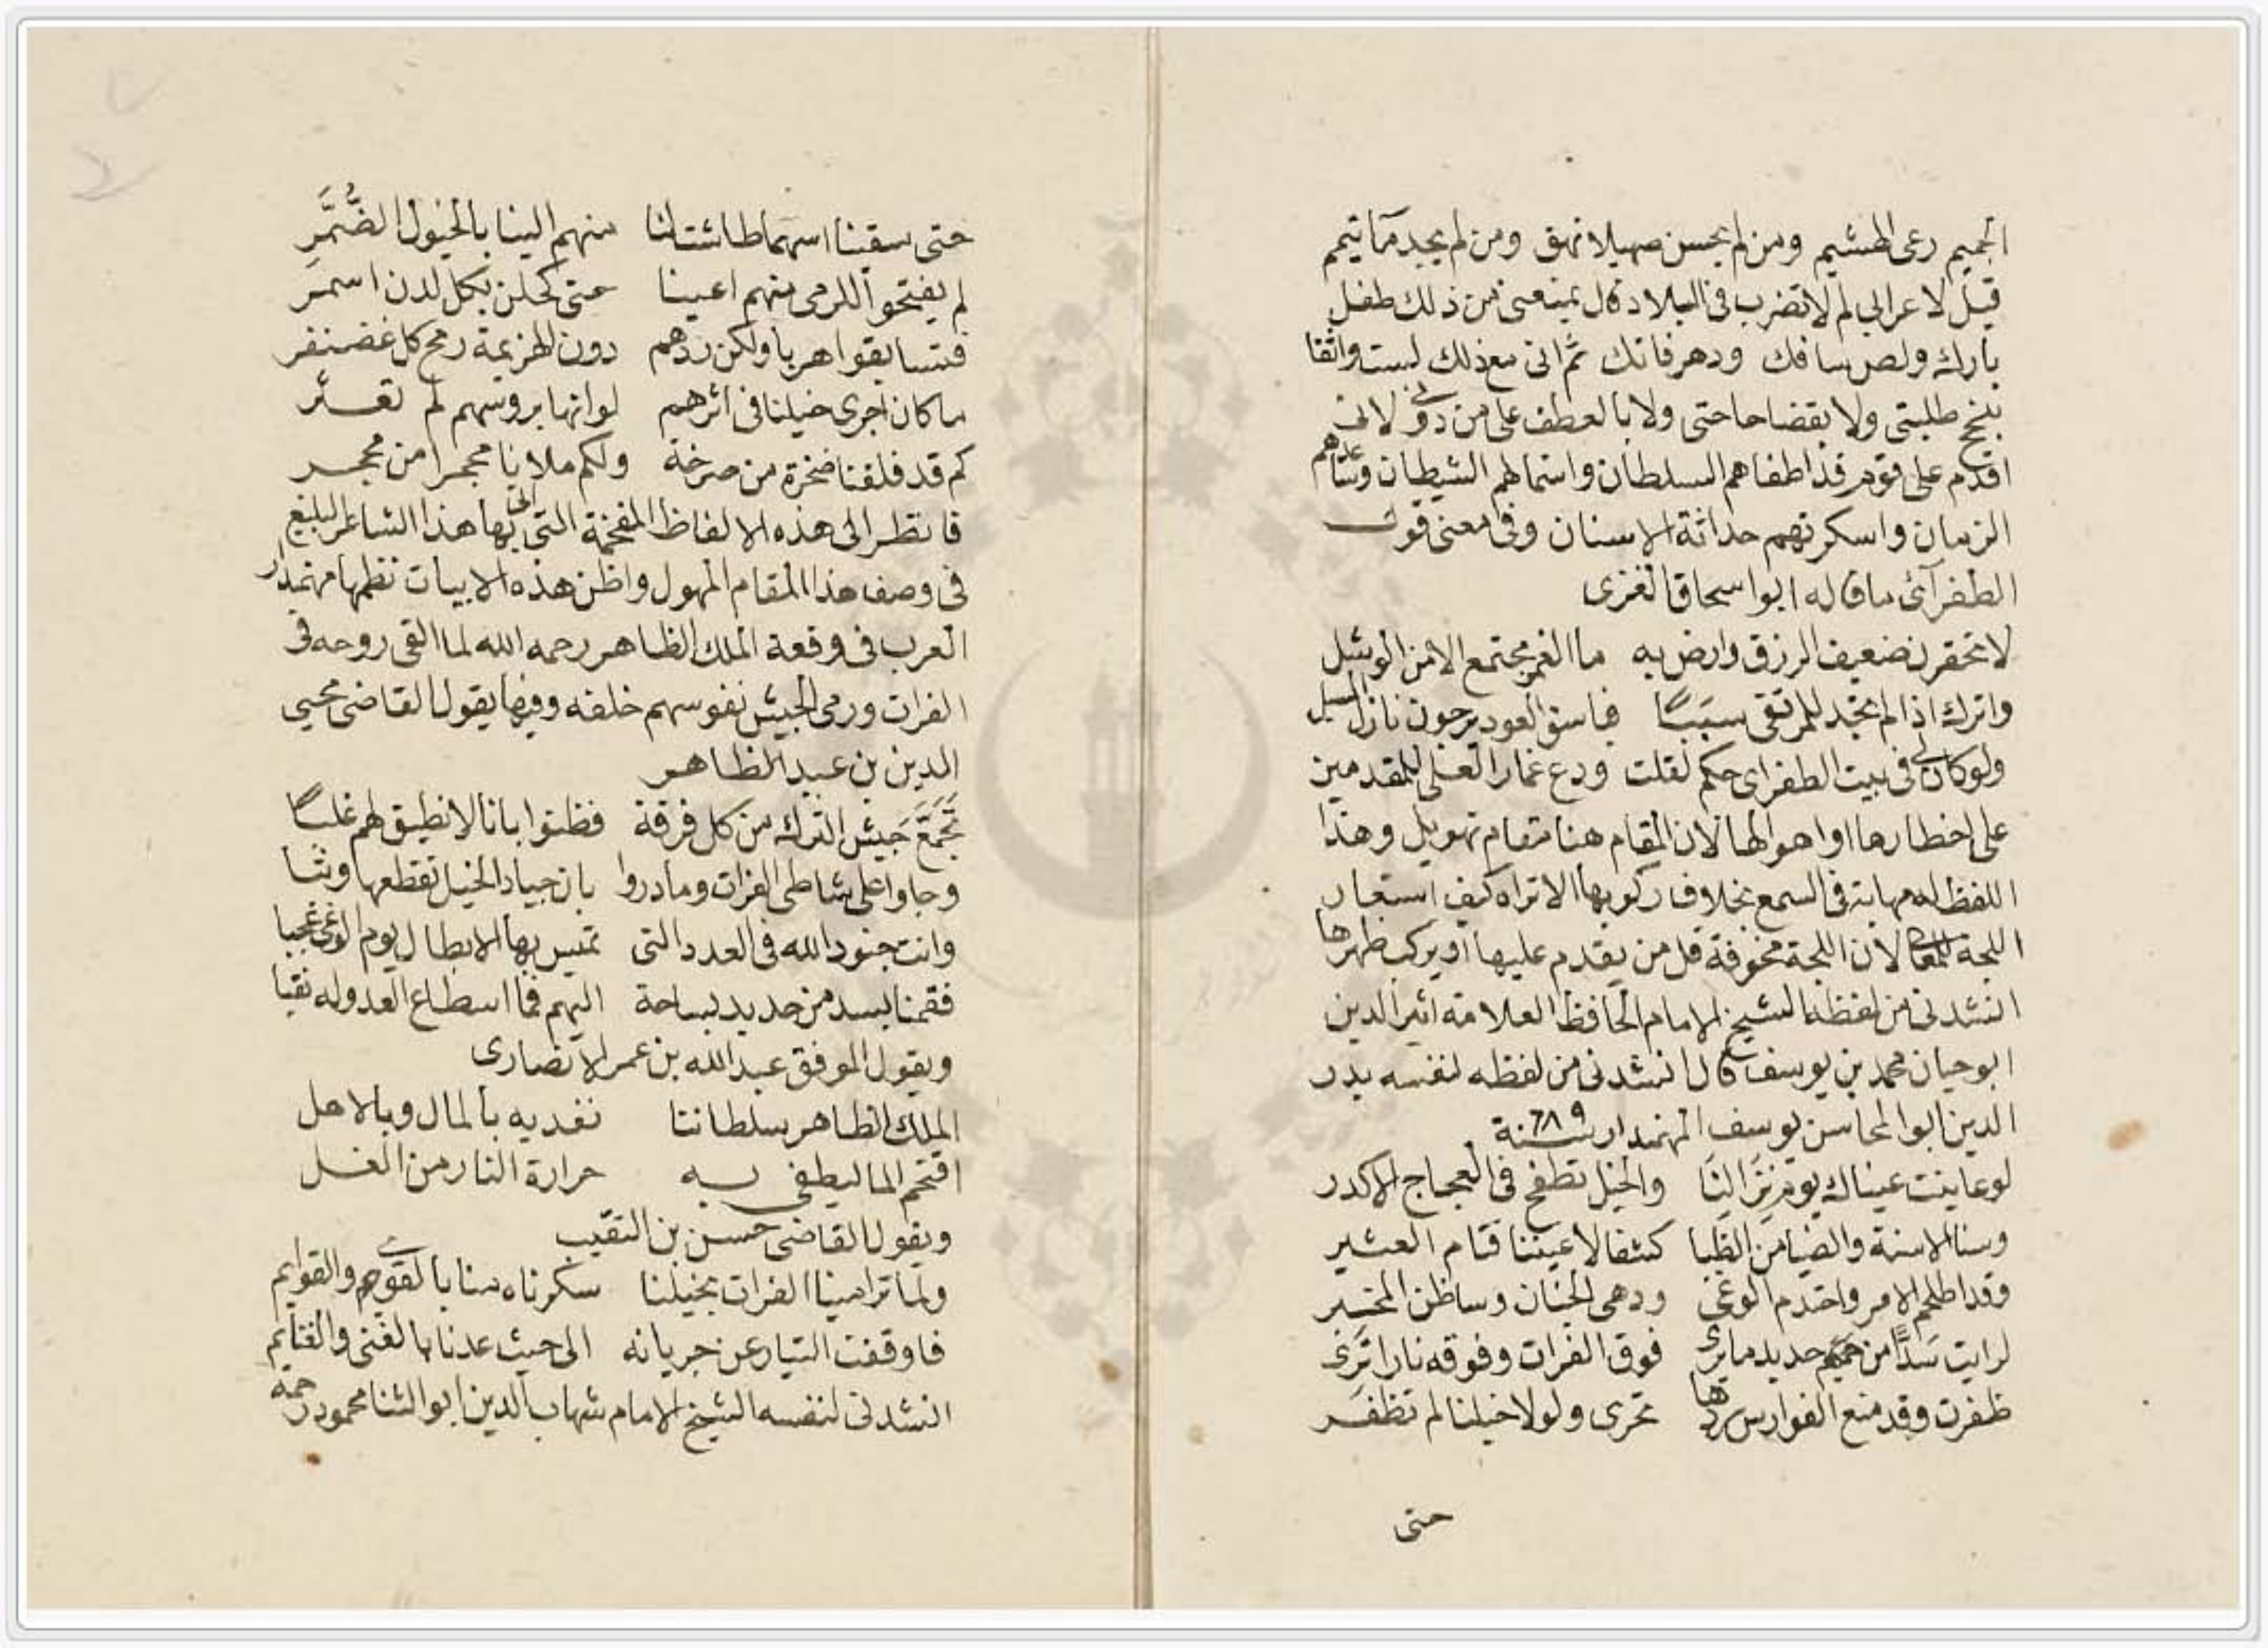 الجميم رعى الهشيم ومن لم يحسن صهيلا نهق ومن لم يجد ما تيمم
قيل لاعرابي لم لا تضرب في البلاد قال يمنعني من ذلك طفل
بارك ولص سافك ودهر فاتك ثم اني مع ذلك لست واثقا
بنجح طلبتي ولا بقضا حاجتي ولا بالعطف علي من لاني
اقدم على قوم قد اطغاهم السلطان واستمالهم الشيطان وساعدهم
الزمان واسكرتهم حداثة الاسنان وفي معنى قول
الطغرآئي ما قاله ابو اسحاق الغزي
لا تحقرن ضعيف الرزق وارض به ما الغمر مجتمع الا من الوشل
واترك اذا لم تجد للمرتقى سببًا فباسق العود يرجون نازل السيل
ولو كان لي في بيت الطغراي حكم لقلت ودع غمار العلى للمقدمين
على اخطارها او اهوالها لان المقام هنا مقام تهويل وهذا
اللفظ له مهابة في السمع بخلاف ركوبها الا تراه كيف استعار
اللجة للمعا لان اللجة مخوفة قل من يقدم عليها او يركب ظهرها
انشدني من لفظه الشيخ الامام الحافظ العلامة اثير الدين
ابو حيان محمد بن يوسف قال انشدني من لفظه لنفسه بدر
الدين ابو المحاسن يوسف المهمندار سنة ٦٨٩
لو عاينت عيناك يوم نزالنا والخيل تطفح في العجاج الاكدر
وسنا الاسنة والضيا من الظبا كشفا لاعيننا قتام العثير
وقد اطلخم الامر واحتدم الوغى ودهى الجنان وساظن المخبر
لرايت سدًّا من حديد مايرى فوق الفرات وفوقه نارا ترى
ظفرت وقد منع الفوارس ردها تجرى ولولا خيلنا لم تظفر
حتى
حتى سبقنا اسهما طاشت لنا منهم الينا بالخيول الضُّمَّرِ
لم يفتحوا للرمى منهم اعينا حتى كحلن بكل لدن اسمر
فتسابقوا هربا ولكن ردهم دون الهزيمة رمح كل غضنفر
ما كان اجرى خيلنا في اثرهم لو انها بروسهم لم تعثر
كم قد فلقنا صخرة من صرخة ولكم ملانا محجرا من محجر
فانظر الى هذه الالفاظ المفخمة التي اتى بها هذا الشاعر البليغ
في وصف هذا المقام المهول واظن هذه الابيات نظمها مهمندار
العرب في وقعة الملك الظاهر رحمه الله لما القى روحه في
الفرات ورمى الجيش نفوسهم خلفه وفيها يقول القاضى محيي
الدين بن عبد الظاهر
تجمع جيش الترك من كل فرقة فظنوا بانا لا نطيق لهم غلبًا
وجاوا على شاطى الفرات وما دروا بان جياد الخيل تقطعها وثبا
وانت جنود الله في العدد التي تميس بها الابطال يوم الوغى عجبا
فقمنا بسد من حديد بساحة اليهم فما اسطاع العدو له نقبا
ويقول الموفق عبد الله بن عمر الانصارى
الملك الظاهر سلطاننا نفديه بالمال وبالاهل
اقتحم الما ليطفي به حرارة النار من الغل
ويقول القاضى حسن بن النقيب
ولما ترامينا الفرات بخيلنا سكرناه منا بالقوى والقوايم
فاوقفت التيار عن جريانه الى حيث عدنا بالغنى والغنايم
انشدنى لنفسه الشيخ الامام شهاب الدين ابو الثنا محمود رحمه